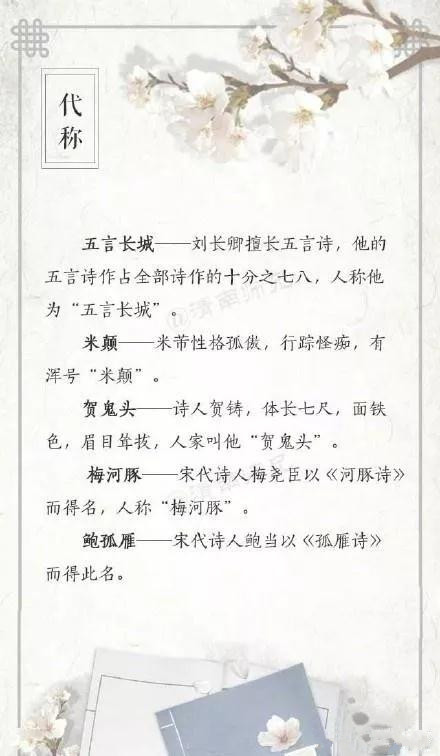 代
称
五言长城——刘长卿擅长五言诗，他的
五言诗作占全部诗作的十分之七八，人称他
为“五言长城”。
米颠——米芾性格孤傲，行踪怪痴，有
浑号“米颠”。
贺鬼头——诗人贺铸，体长七尺，面铁
色，眉目耸拔，人家叫他“贺鬼头”。
梅河豚——宋代诗人梅尧臣以《河豚诗》
而得名，人称“梅河豚”。
鲍孤雁——宋代诗人鲍当以《孤雁诗》
而得此名。